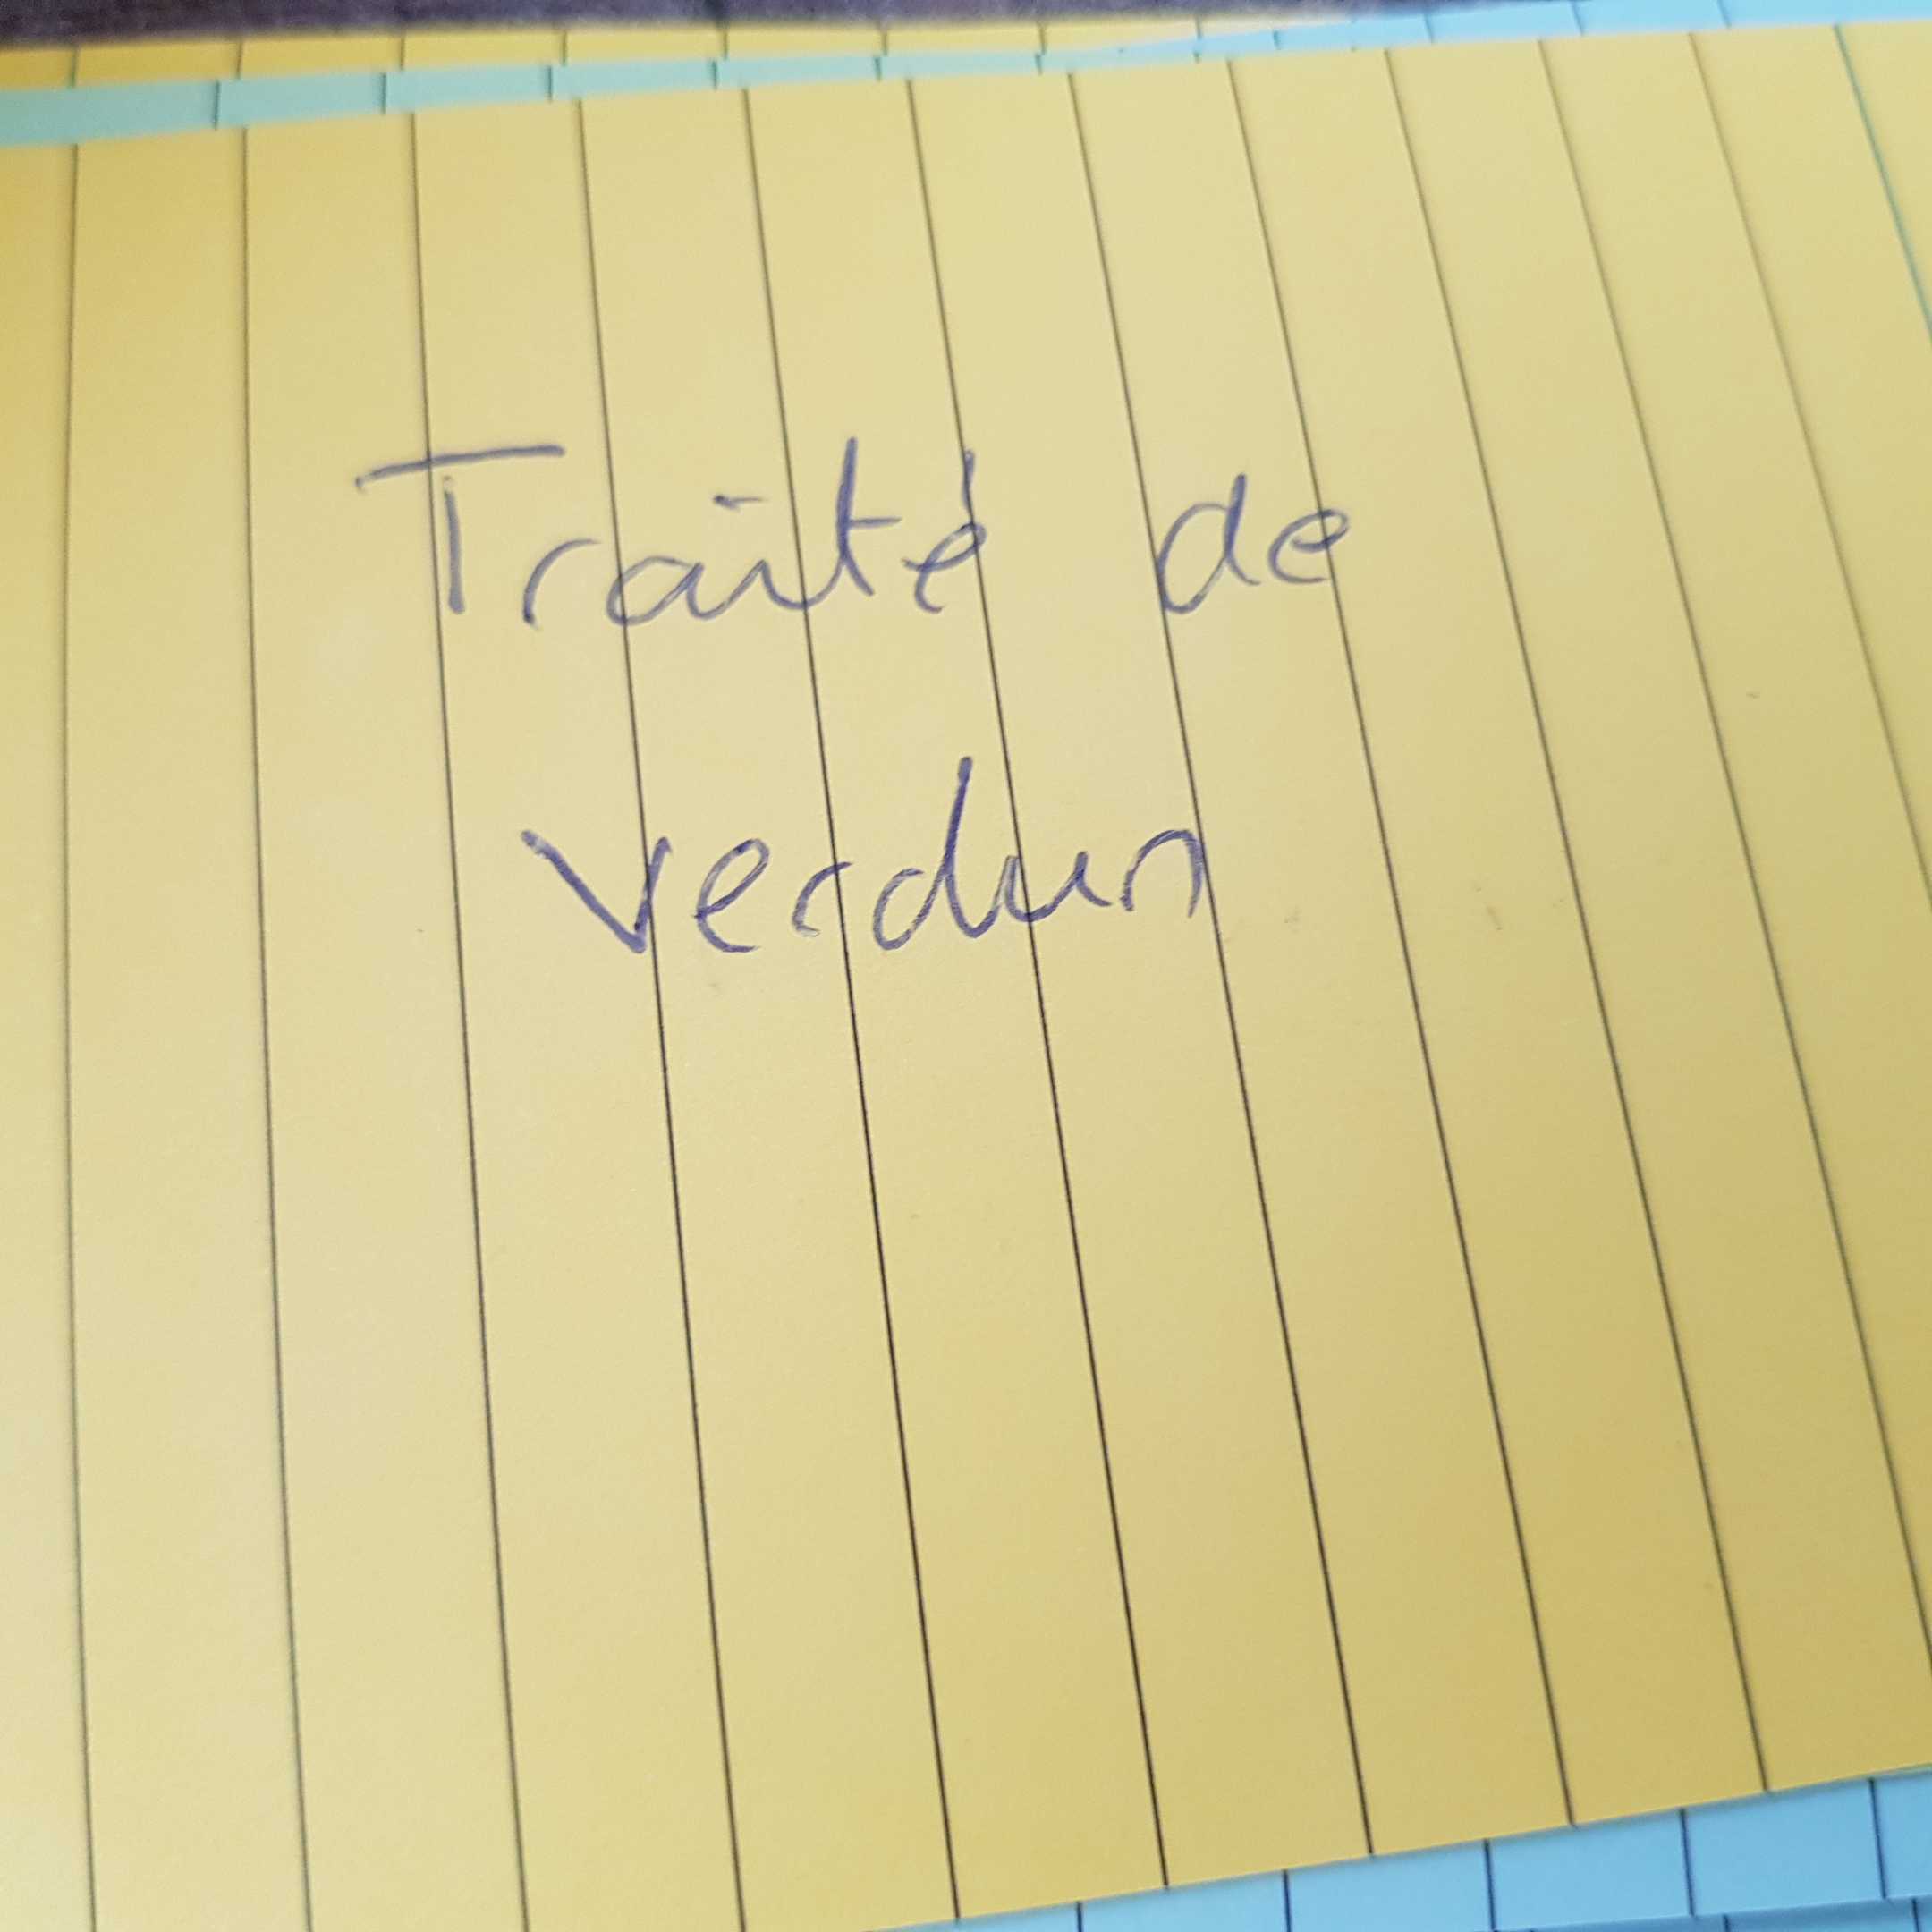 Traité de
verdun